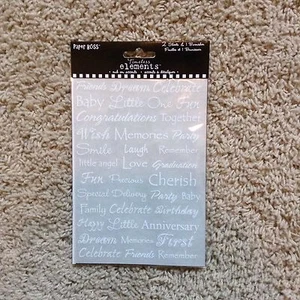 Paper BOSS
2 Sheets & 1 Brander
Timeless
elements
Friends Dream Celebrate
Baby Little One Fun
Congratulations Together
Memories Party
Smile Laugh Remember
little angel Love Graduation
Fun Precious Cherish
Special Delivery Party Baby
Family Celebrate Birthday
Happy Little Anniversary
Dream Memories First
Celebrate Friends Remember